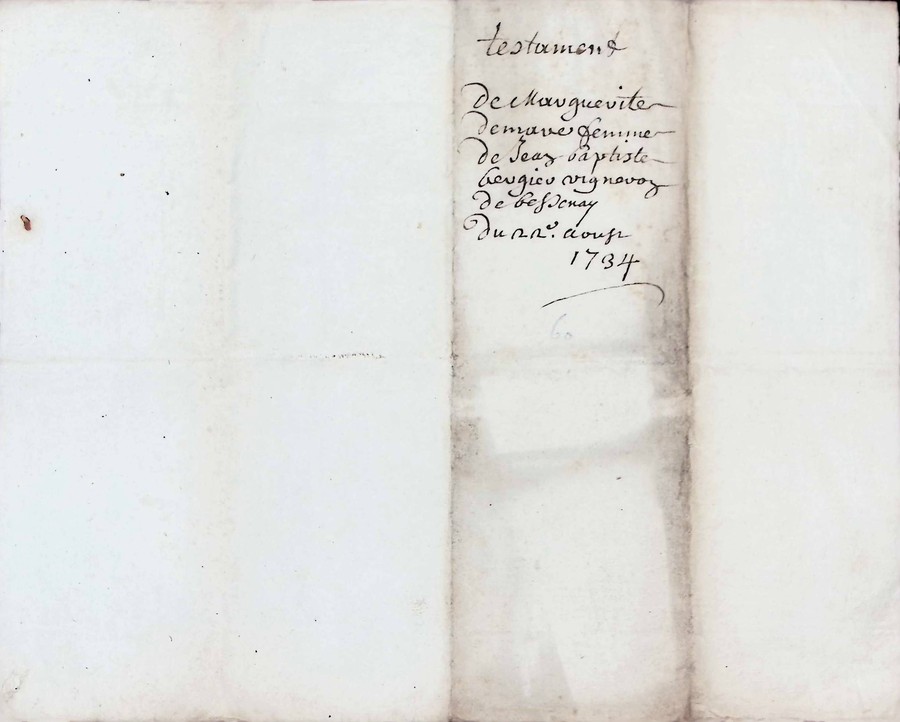 testament
de Marguerite
demare femme
de Jean baptiste
bergier vigneron
de bessenay
du 22e. aoust
1734
60